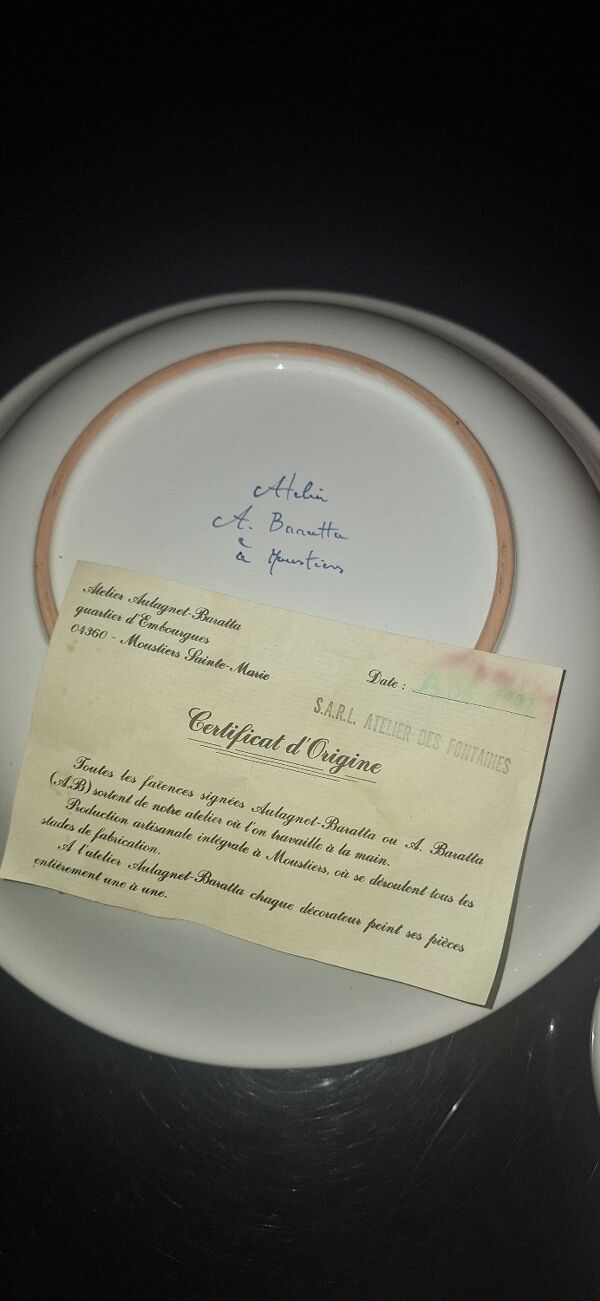 Atelier
A. Baratta
à Moustiers
Atelier Aulagnet-Baratta
quartier d'Embourgues
04360 - Moustiers Sainte-Marie
Date :
S.A.R.L. ATELIER DES FONTAINES
Certificat d'Origine
Toutes les faïences signées Aulagnet-Baratta ou A. Baratta
(A.B) sortent de notre atelier où l'on travaille à la main.
Production artisanale intégrale à Moustiers, où se déroulent tous les
stades de fabrication.
A l'atelier Aulagnet-Baratta chaque décorateur peint ses pièces
entièrement une à une.